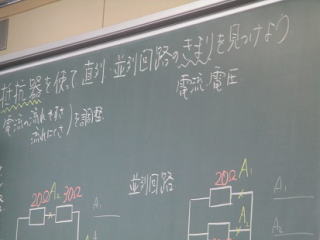 抵抗器を使って直列・並列回路のきまりを見つけよう
電流・電圧
電流の流れやすさ
流れにくさ を調整
並列回路
20Ω A₂ 30Ω
20Ω A₁
A₁
A₂